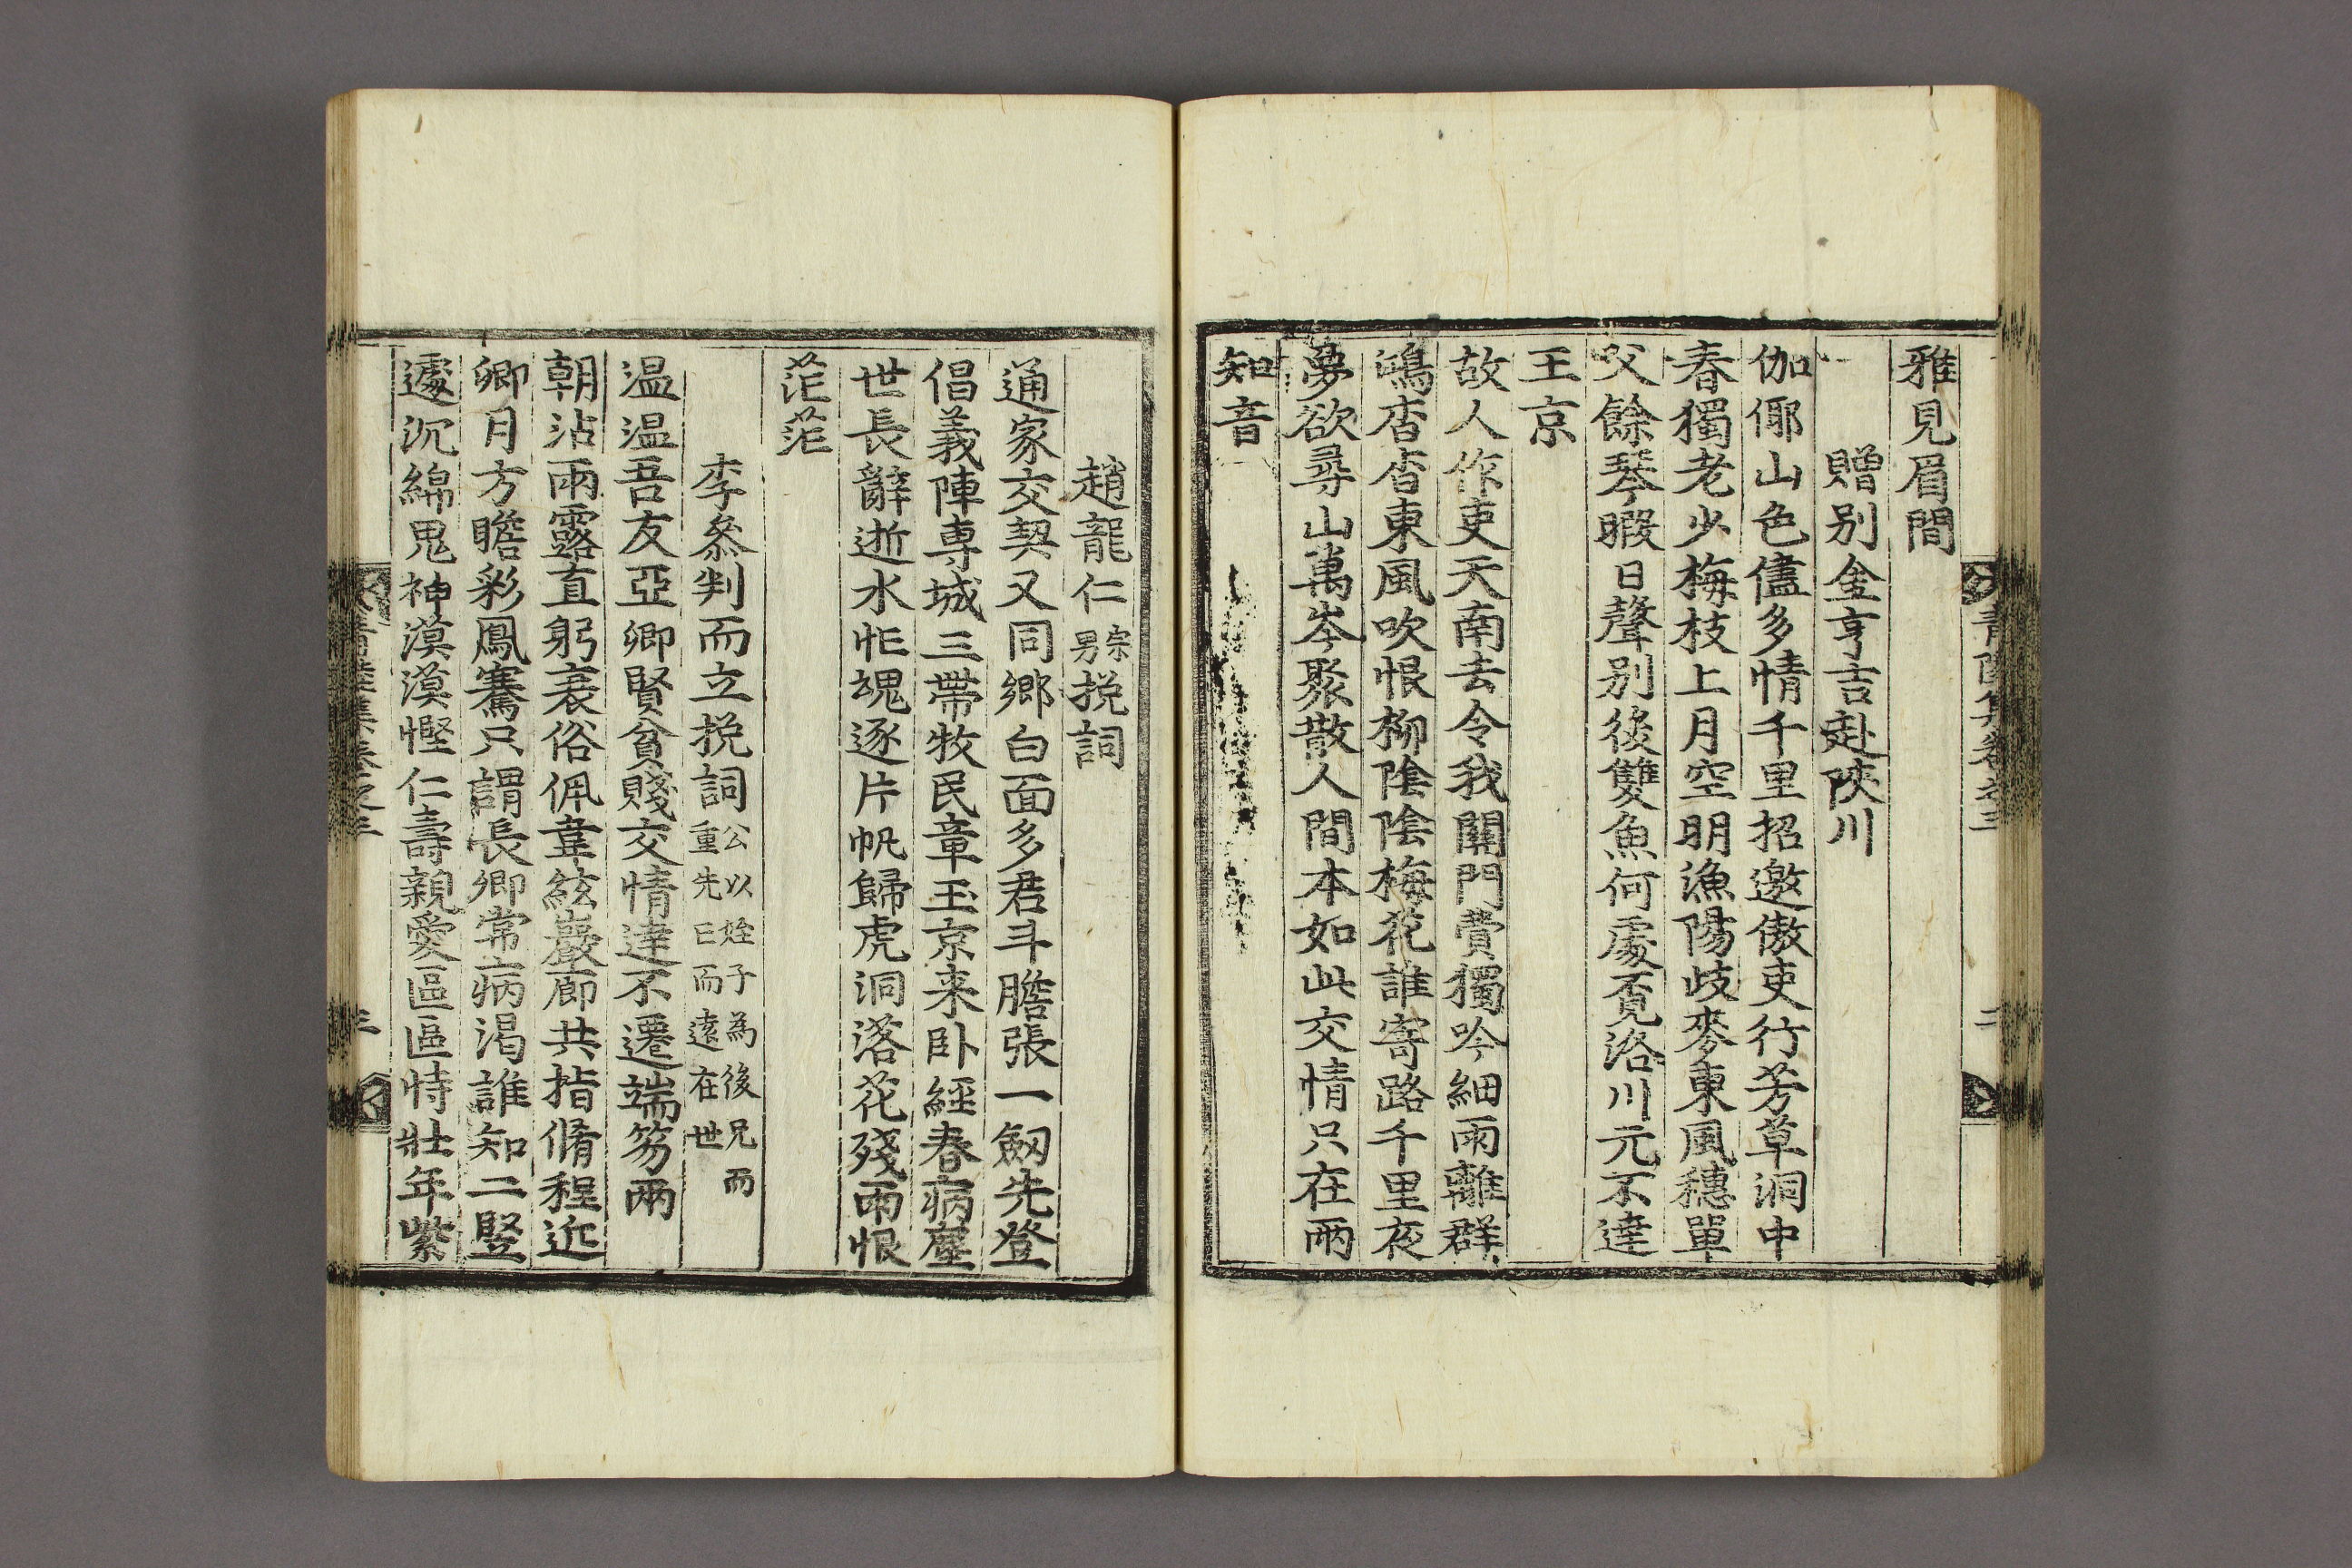 雅見眉間
贈別金亨吉赴陜川
伽倻山色儘多情千里招邀傲吏行芳草洞中
春獨老少梅枝上月空明漁陽歧麥東風穗單
父餘琴暇日聲別後雙魚何處覔洛川元不達
王京
故人作吏天南去令我關門費獨吟細雨離群
鴻杳杳東風吹恨柳陰陰梅花誰寄路千里夜
夢欲尋山萬岑聚散人間本如此交情只在兩
知音
趙龍仁宗男挽詞
通家交契又同鄉白面多君斗膽張一劔先登
倡義陣專城三帶牧民章玉京来卧經春病塵
世長辭逝水忙魂逐片帆歸虎洞落花殘雨恨
茫茫
李叅判而立挽詞公以姪子為後兄而重先亡而遠在世
温温吾友亞卿賢貧賤交情達不遷端笏兩
朝沾雨露直躬衰俗佩韋絃巖廊共指脩程近
卿月方瞻彩鳳騫只謂長卿常病渴誰知二竪
遽沉綿鬼神漠漠慳仁壽親愛區區恃壯年紫